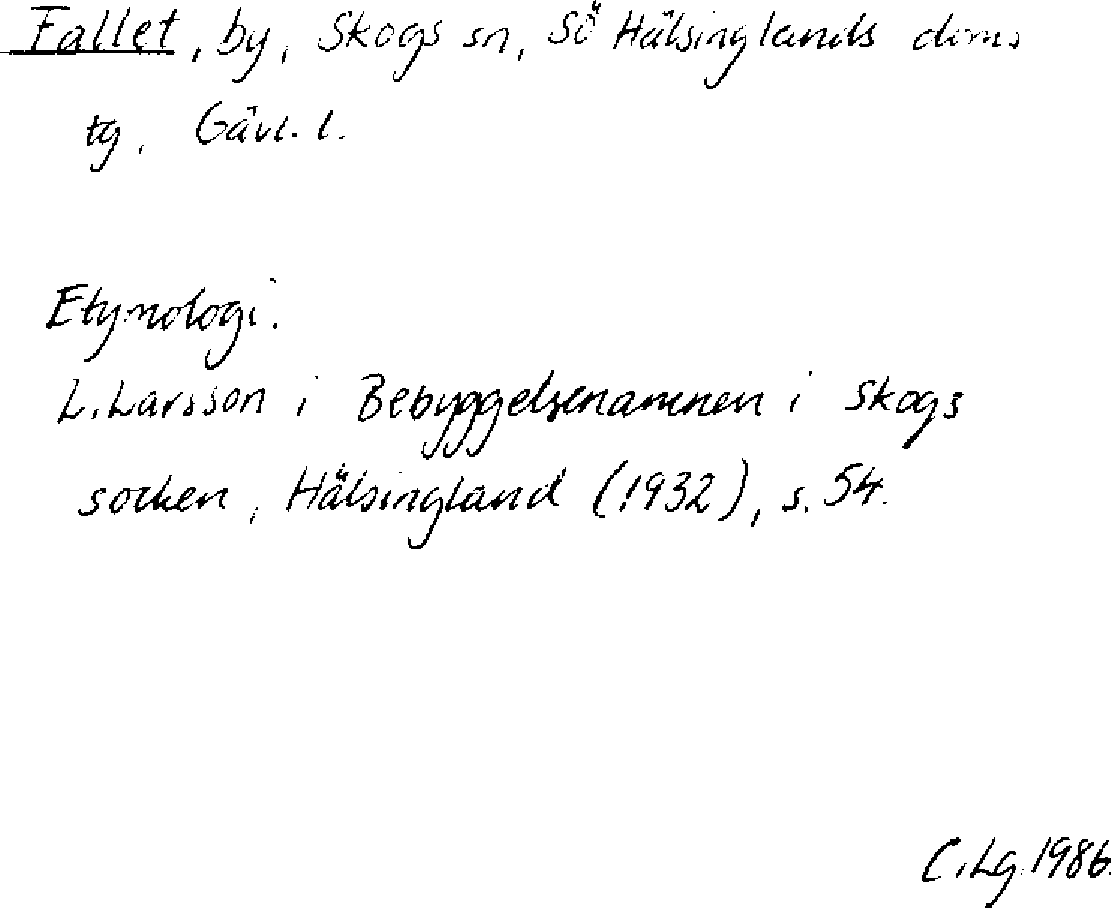 Fallet, by, Skogs sn, Sö Hälsinglands doms
tg, Gävl. l.
Etymologi.
L. Larsson i Bebyggelsenamnen i Skogs
socken, Hälsingland (1932), s. 54.
C. Lg. 1986.